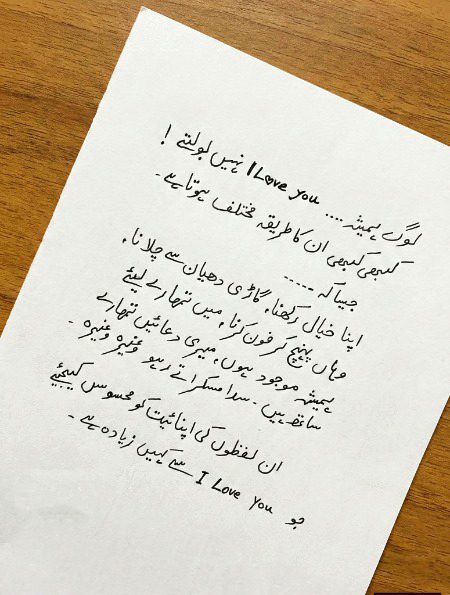 لوگ ہمیشہ .... I Love you نہیں بولتے !
کبھی کبھی ان کا طریقہ مختلف ہوتا ہے۔
جیسا کہ .....
اپنا خیال رکھنا، گاڑی دھیان سے چلانا،
وہاں پہنچ کر فون کرنا، میں تمھارے لیئے
ہمیشہ موجود ہوں، میری دعائیں تمھارے
ساتھ ہیں۔ سدا مسکراتے رہو وغیرہ وغیرہ۔
ان لفظوں کی اپنائیت کو محسوس کیجئیے
جو I Love you سے کہیں زیادہ ہے۔